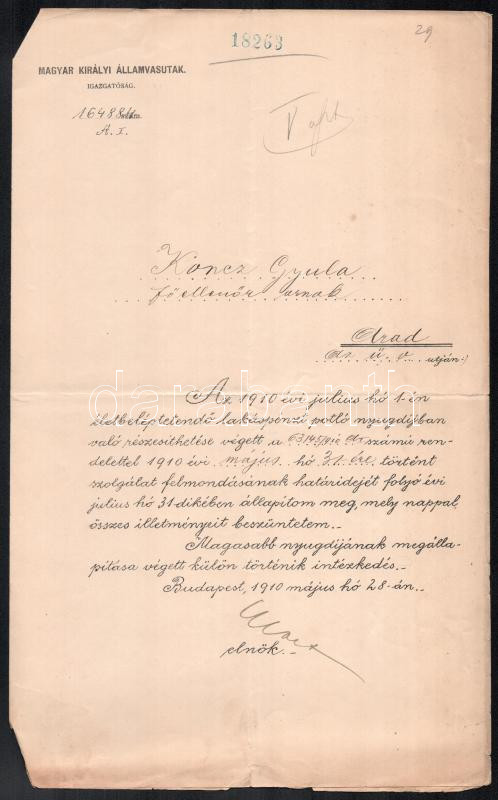 18263
29
MAGYAR KIRÁLYI ÁLLAMVASUTAK.
IGAZGATÓSÁG.
A. I.
V
Koncz Gyula
főellenőr urnak
Arad
az ü. v. utján:)
Az 1910 évi julius hó 1-én
életbeléptetendő lakáspénzt potló nyugdijban
való részesithetése végett a számú ren-
delettel 1910 évi május hó 31-ére történt
szolgálat felmondásának határidejét folyó évi
julius hó 31-dikében állapitom meg, mely nappal
összes illetményeit beszüntetem.-
Magasabb nyugdijának megálla-
pitása végett külön történik intézkedés.-
Budapest, 1910 május hó 28-án.-
elnök.-
darabanth
www.darabanth.com